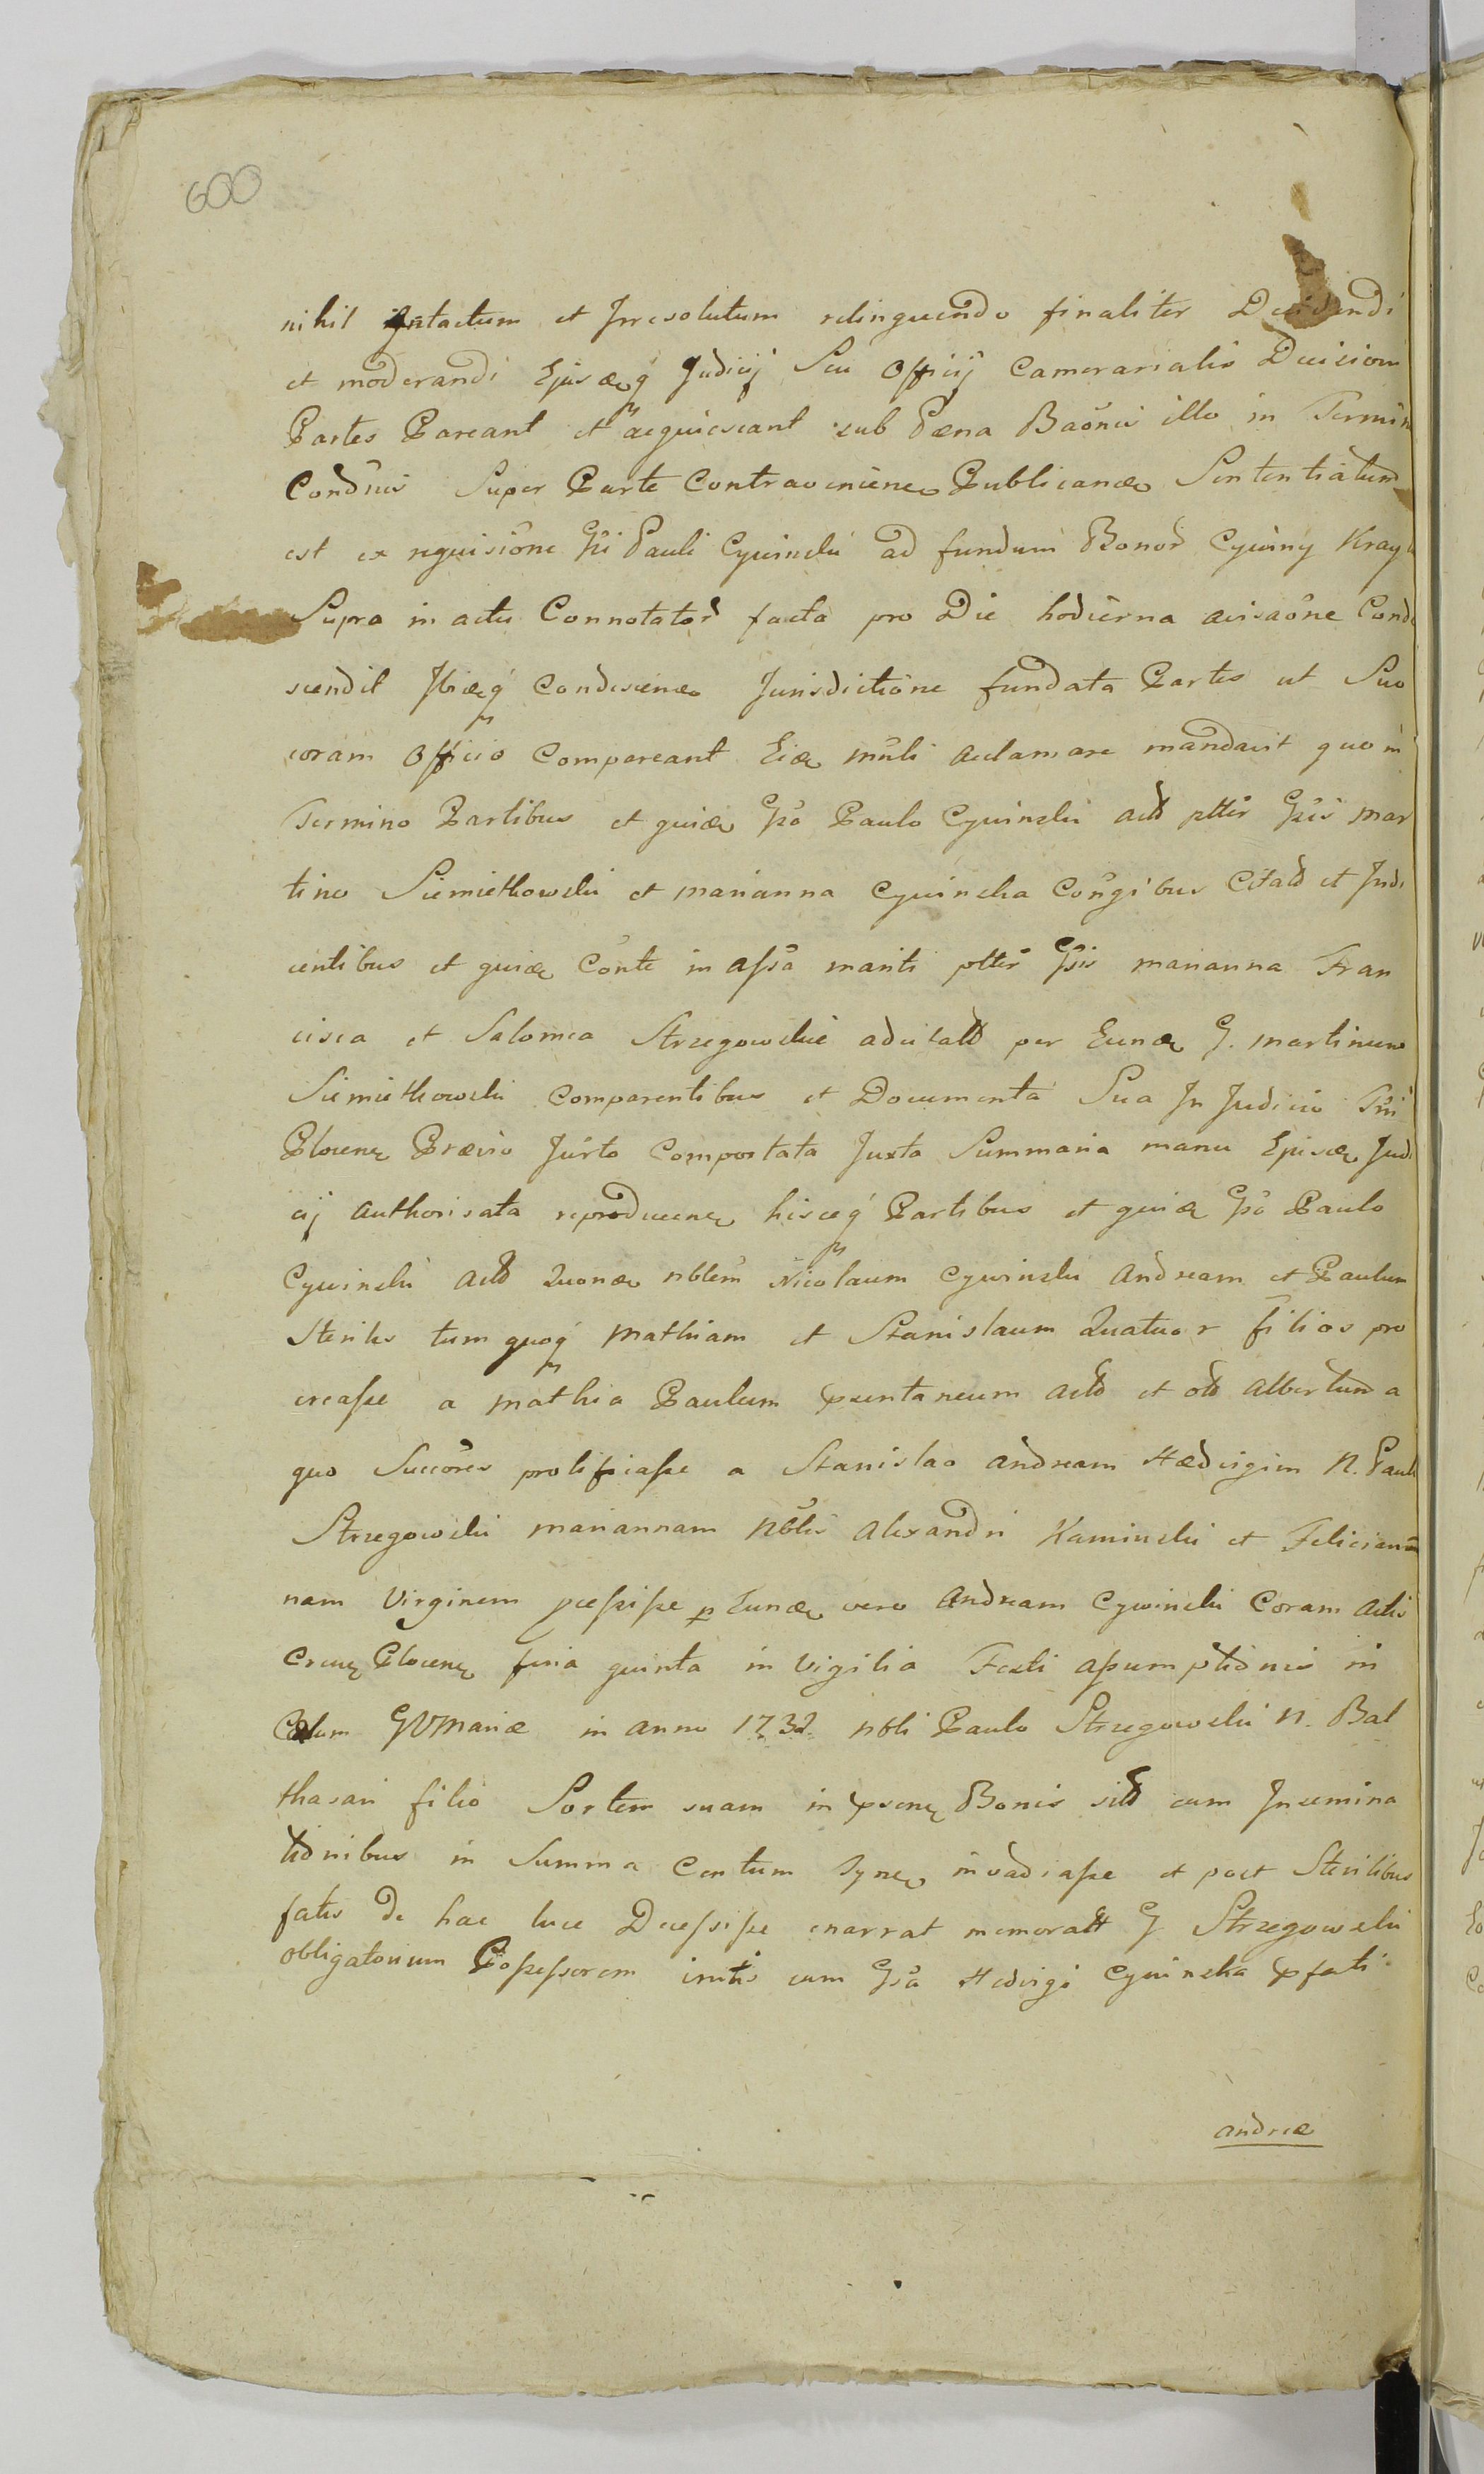 600
nihil intactum et Irresolutum relinquendo finaliter Decidendi
et moderandi Ejusdq Judicij Seu Officij Camerarialis Decisioni
Partes Pareant et acquiescant sub Pœna Baõnis illo in Termin
Condnis Super Parte Contraveniene Publicanda Sententiatum
est ex requisiõne Gsi Pauli Cywinski ad fundum Bonor Cywiny Kray
Supra in actu Connotator facta pro Die hodierna avisaõne Conde
scendit Ibiqꝫ Condescend Jurisdictiõne fundata Partes ut Suo
coram Officio Compareant Eidem mnli aclamare mandavit quo in
Termino Partibus et quidem Gso Paulo Cywinski act ptter Gsis Mar
tino Siemiethowski et Marianna Cywinska Congibus Citatt et Indi
centibus et quidem Conte in assa mariti ptter Gsis Marianna Fran
cisca et Salomea Strzegowskie adcitatt per Eundem G. Martinum
Siemiethowski Comparentibus et Documenta Sua In Judicio Tri
Plocen Prævio Jurto Comportata Juxta Summaria manu Ejusdem Judi
cij authorisata reproducen hisceq Partibus et quidem Gso Paulo
Cywinski act Quondam nblem Nicolaum Cywinski Andream et Paulum
Steriles tum quoq Mathiam et Stanislaum Quatuor filios pro
creasse a Mathia Paulum præsentaneum act et olt Albertum a
quo Succores prolificasse a Stanislao Andream Hedvigim N. Pauli
Strzegowski Mariannam Nblis Alexandri Kaminski et Felician
nam Virginem processisse p Eundem vero Andream Cywinski Coram Actis
Crens Plocens feria quinta in Vigilia Festi assumptionis in
Cœlum GVMariæ in anno 1732 nbli Paulo Strzegowski N. Bal
thasari filio Sortem suam in præsens Bonis sitt cum Insemina
tionibus in Summa Centum Tyne invadiasse et post Sterilibus
fatis de hac luce Decessisse enarrat memoratt G Strzegowski
obligatorium Possessorem initis cum Gsa Hedvigi Cywinska præfati
andreæ